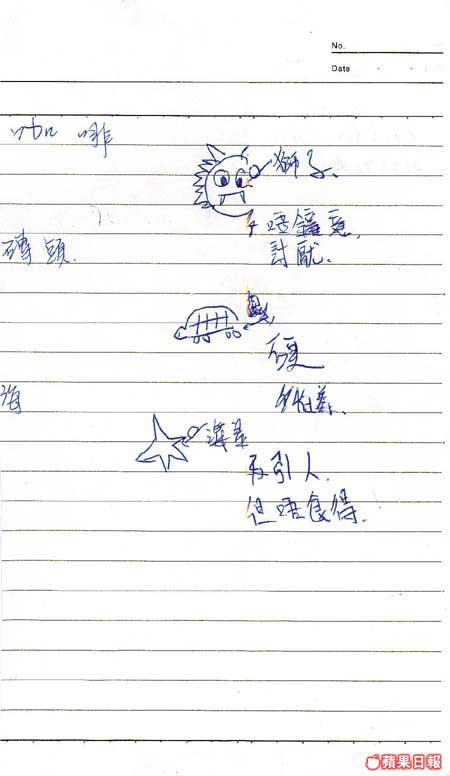 No.
Date
咖啡
獅子
唔鐘意
磚頭.
討厭.
硬
海
海星
吸引人.
但唔食得.
蘋果日報